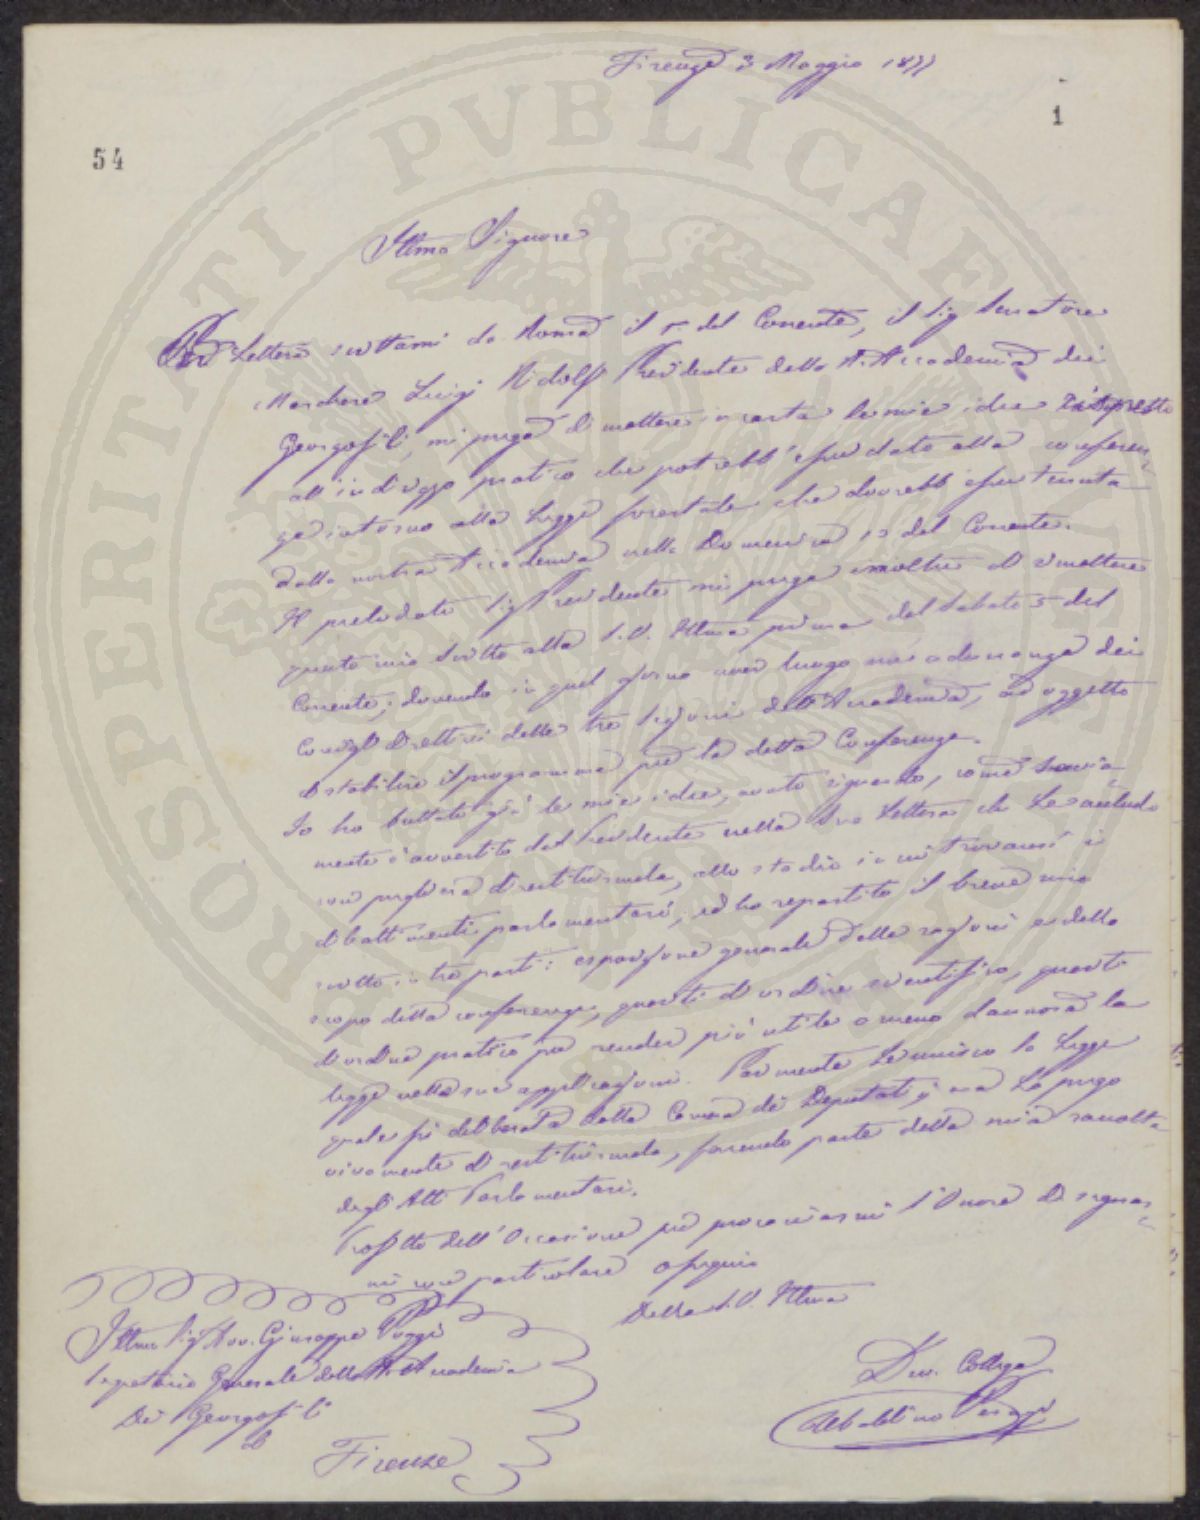 Firenze 3 Maggio 1877
1
54
Illmo Signore
Con lettera scrittami da Roma il 1º del Corrente, il Sig Senatore
Marchese Luigi Ridolfi Presidente della R. Accademia dei
Georgofili, mi prega di mettere in carta le mie idee rispetto
all'indirizzo pratico che potrebb'esser dato alla conferen-
ze intorno alla Legge forestale che dovrebb'esser tenuta
dalla nostra Accademia nella Domenica 13 del Corrente.
Il prelodato Sig Presidente mi prega inoltre di rimettere
questo mio scritto alla S.V. Illma prima del Sabato 5 del
Corrente; dovendo in quel giorno aver luogo una adunanza dei
Consigli Direttivi delle tre Sezioni dell'Accademia, ad oggetto
di stabilire il programma per la detta Conferenza.
Io ho buttate giù le mie idee, avuto riguardo, come savia-
mente è avvertito dal Presidente nella Sua Lettera che Le accludo
con preghiera di restituirmela, allo stadio in cui trovansi i
dibattimenti parlamentari, ed ho repartito il breve mio
scritto in tre parti: esposizione generale delle ragioni e dello
scopo della conferenza, quesiti d'ordine scientifico, quesiti
d'ordine pratico per render più utile o meno dannosa la
legge nella sua applicazione. Parimente Le unisco la Legge
quale fu deliberata dalla Camera dei Deputati, ma La prego
vivamente di restituirmela, facendo parte della mia raccolta
degli Atti Parlamentari.
Profitto dell'Occasione per procurarmi l'Onore di segnar-
mi con particolare ossequio
Della S.V. Illma
Dev. Collega
Illmo Sig Avv. Giuseppe Poggi
Segretario Generale della R. Accademia
Dei Georgofili
di
Firenze
PROSPERITATI PUBLICAE